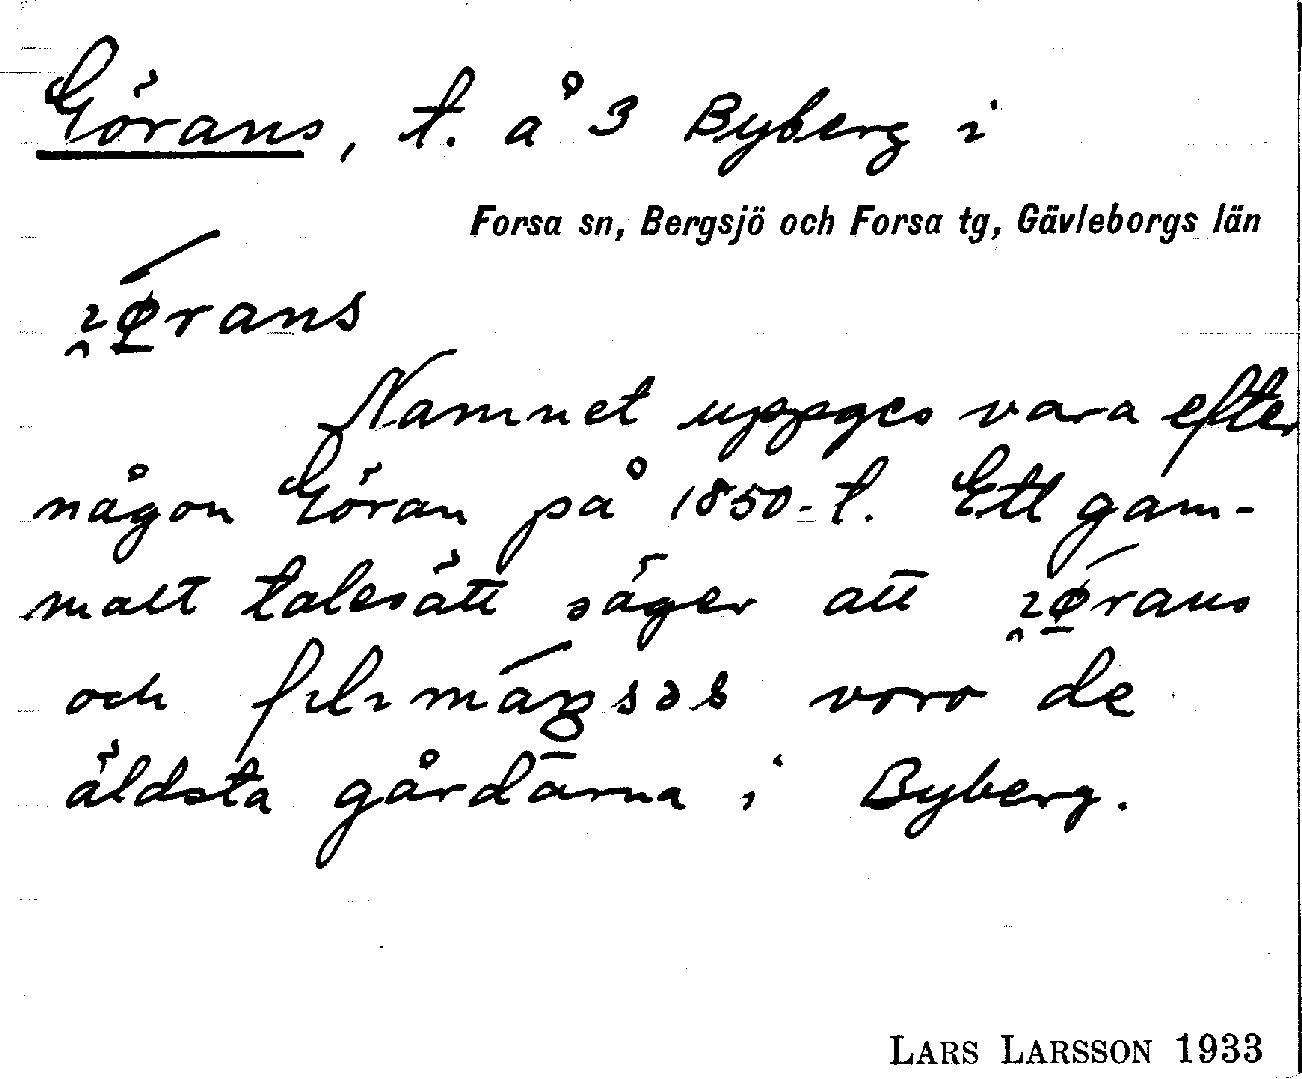 Görans, t. å 3 Byberg i
Forsa sn, Bergsjö och Forsa tg, Gävleborgs län
ı̯ǿ̠rans
Namnet uppges vara efter
någon Göran på 1850-t. Ett gam-
malt talesätt säger att ı̯ǿ̠rans
och
voro de
äldsta gårdarna i Byberg.
LARS LARSSON 1933